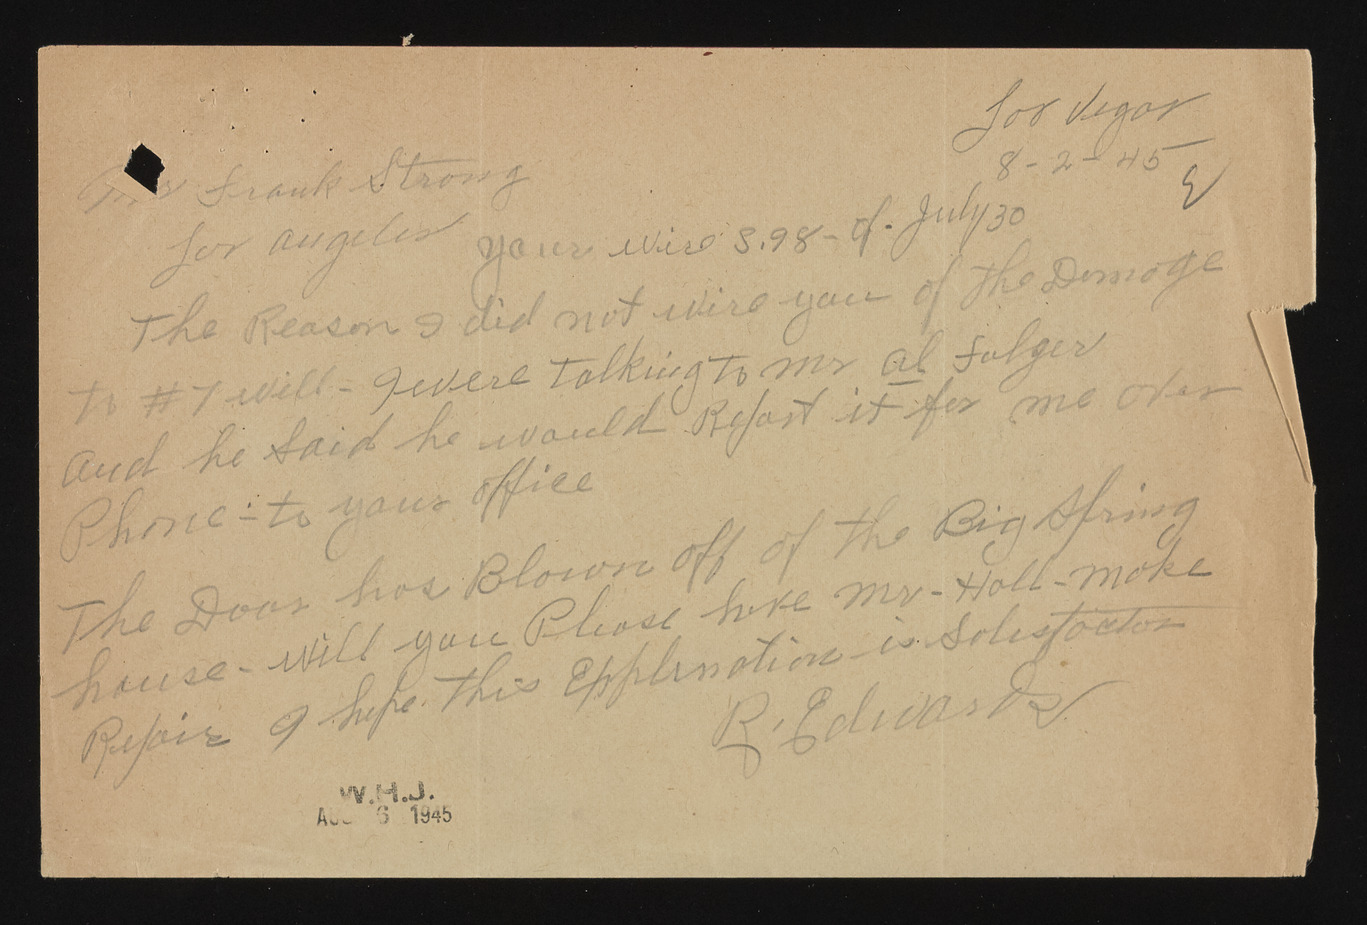 Las Vegas
8-2-45
Mr Frank Strong
Los Angeles
your wire S.98- of. July 30
The Reason I did not wire you of the Domoge
to #7 will- I were talking to mr al Folger
and he Said he would Report it for me over
Phone- to your office
The Door has Blown off of the Big Spring
house- will you Please have mr- Hall- make
Repair I hope this Epplination is Satisfactor
R. Edwards
W.H.J.
AUG 6 1945